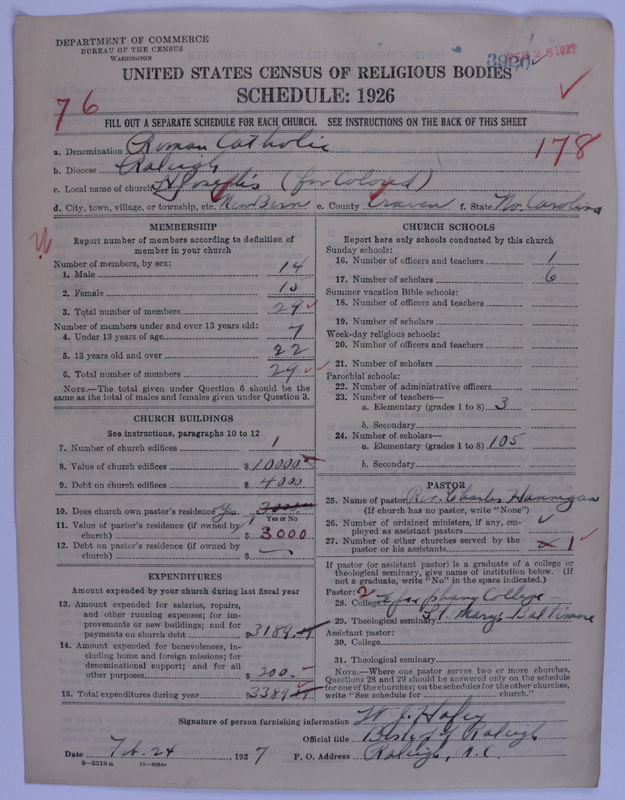 DEPARTMENT OF COMMERCE
BUREAU OF THE CENSUS
WASHINGTON
UNITED STATES CENSUS OF RELIGIOUS BODIES
SCHEDULE: 1926
76
FILL OUT A SEPARATE SCHEDULE FOR EACH CHURCH. SEE INSTRUCTIONS ON THE BACK OF THIS SHEET
178
a. Denomination Roman Catholic
b. Diocese Raleigh
c. Local name of church St Joseph's (for Colored)
d. City, town, village, or township, etc. New Bern e. County Craven f. State No. Carolina
MEMBERSHIP
Report number of members according to definition of
member in your church
Number of members, by sex:
1. Male 14
2. Female 15
3. Total number of members 29
Number of members under and over 13 years old:
4. Under 13 years of age 7
5. 13 years old and over 22
6. Total number of members 29
NOTE.—The total given under Question 6 should be
same as the total of males and females given under Question 3.
CHURCH BUILDINGS
See instructions, paragraphs 10 to 12
7. Number of church edifices 1
8. Value of church edifices $10000
9. Debt on church edifices $4000
10. Does church own pastor's residence? Yes
Yes or No
11. Value of pastor's residence (if owned by
church) $3000
12. Debt on pastor's residence (if owned by
church) $
EXPENDITURES
Amount expended by your church during last fiscal year
13. Amount expended for salaries, repairs,
and other running expenses; for im-
provements or new buildings; and for
payments on church debt $3189
14. Amount expended for benevolences, in-
cluding home and foreign missions; for
denominational support; and for all
other purposes $200.
15. Total expenditures during year $3389
CHURCH SCHOOLS
Report here only schools conducted by this church
Sunday schools:
16. Number of officers and teachers 1
17. Number of scholars 6
Summer vacation Bible schools:
18. Number of officers and teachers
19. Number of scholars
Week-day religious schools:
20. Number of officers and teachers
21. Number of scholars
Parochial schools:
22. Number of administrative officers
23. Number of teachers—
a. Elementary (grades 1 to 8) 3
b. Secondary
24. Number of scholars—
a. Elementary (grades 1 to 8) 105
b. Secondary
PASTOR
25. Name of pastor Rev. Charles Hannigan
(If church has no pastor, write "None")
26. Number of ordained ministers, if any, em-
ployed as assistant pastors
27. Number of other churches served by the
pastor or his assistants 1
If pastor (or assistant pastor) is a graduate of a college or
theological seminary, give name of institution below. (If
not a graduate, write "No" in the space indicated.)
Pastor: 2
28. College Epiphany College
29. Theological seminary St. Mary's Baltimore
Assistant pastor:
30. College
31. Theological seminary
NOTE.—Where one pastor serves two or more churches,
Questions 28 and 29 should be answered only on the schedule
for one of the churches; on the schedules for the other churches,
write "See schedule for church."
Signature of person furnishing information W. J. Hafey
Official title Bishop of Raleigh
Date Feb. 24 1927 P. O. Address Raleigh, N.C.
8—5518a